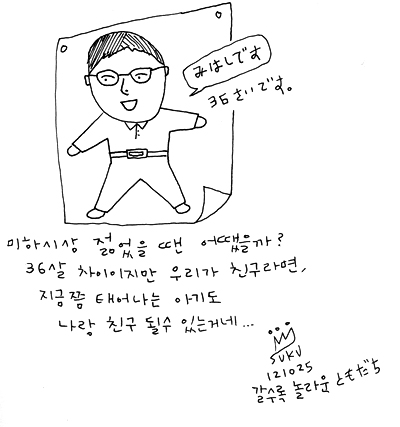 みはしです
36さいです。
미하시상 젊었을 땐 어땠을까?
36살 차이이지만 우리가 친구라면,
지금쯤 태어나는 아기도
나랑 친구 될수 있는거네...
SUKU
121025
갈수록 놀라운 ともだち